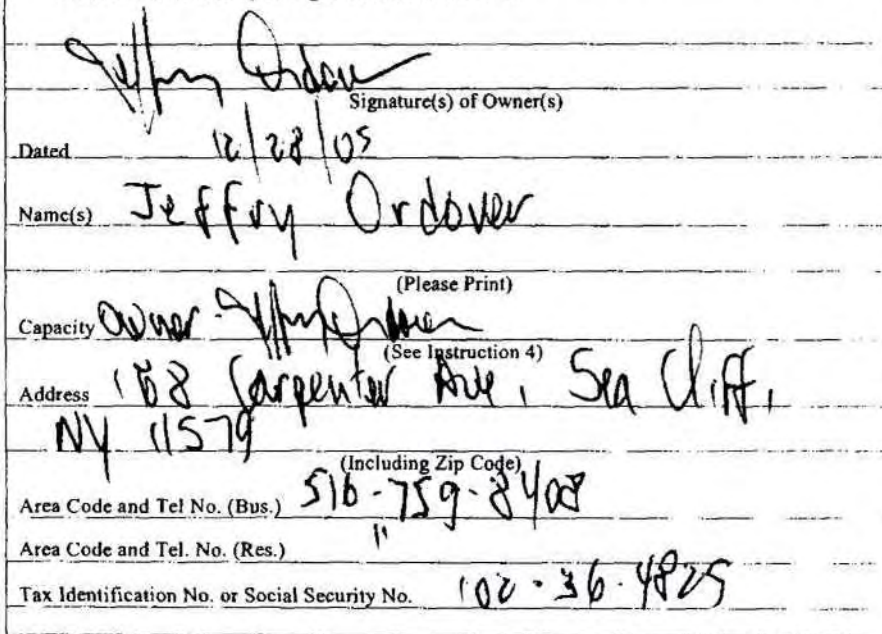 Signature(s) of Owner(s)
Dated 12/28/05
Name(s) Jeffry Ordover
(Please Print)
Capacity Owner -
(See Instruction 4)
Address Carpenter Ave, Sea Cliff,
NY 11579
(Including Zip Code)
Area Code and Tel No. (Bus.) 516-759-8408
Area Code and Tel. No. (Res.) "
Tax Identification No. or Social Security No.